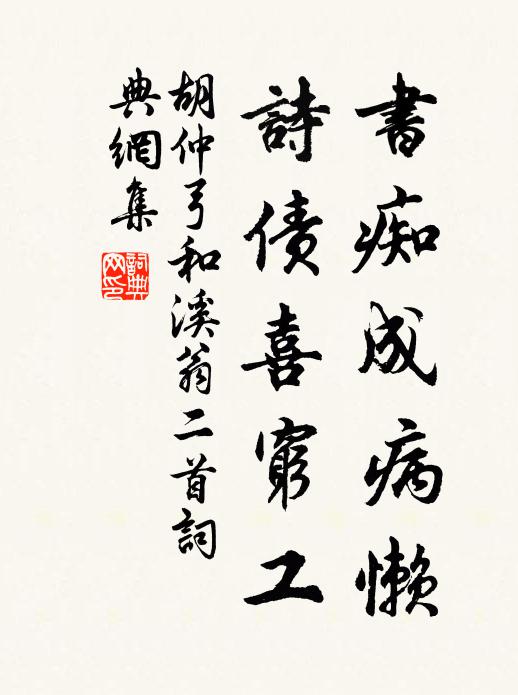 書痴成病懶
詩债喜窮工
胡仲弓和溪翁二首詞
典網集
詞典网印